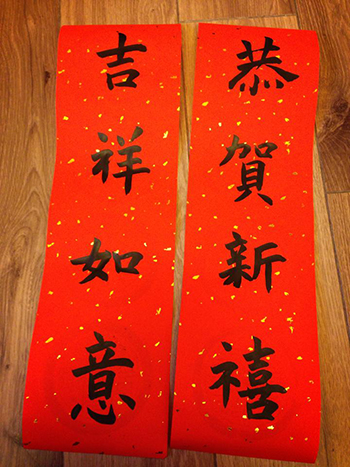 恭賀新禧
吉祥如意